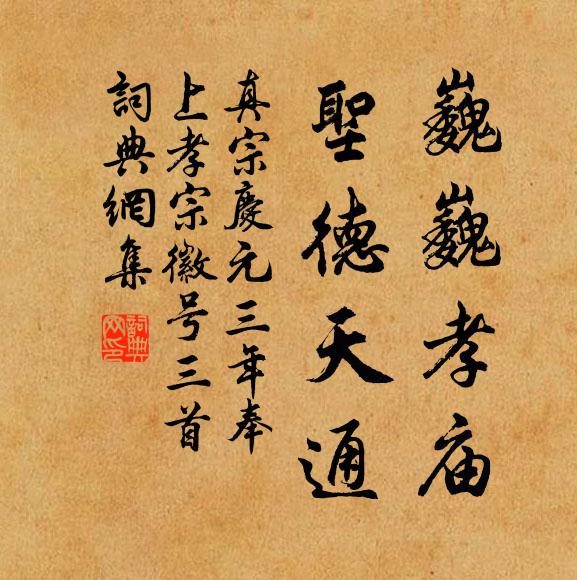 巍巍孝庙
聖德天通
真宗慶元三年奉
上孝宗徽号三首
詞典網集
詞典
网印